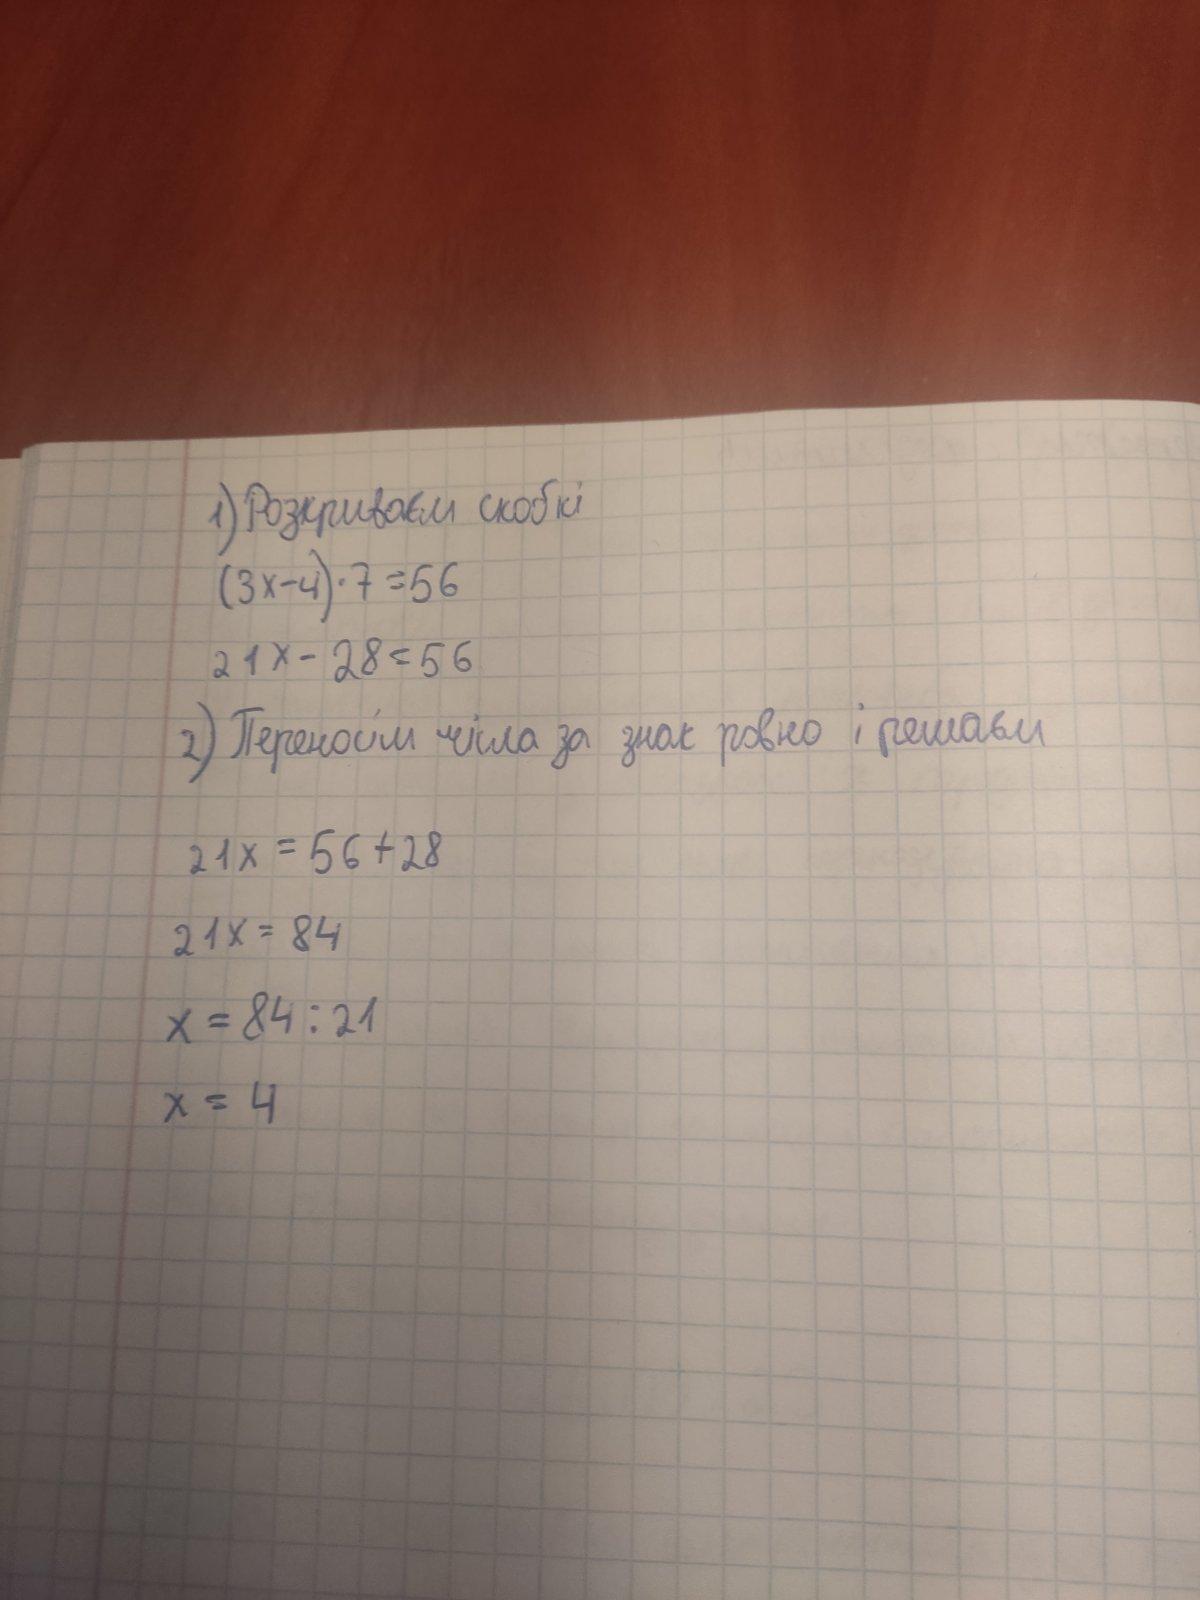 1) Розкриваєм скобкі
(3x-4)·7=56
21x-28=56
2) Переносім чісла за знак ровно і решаєм
21x=56+28
21x=84
x=84:21
x=4